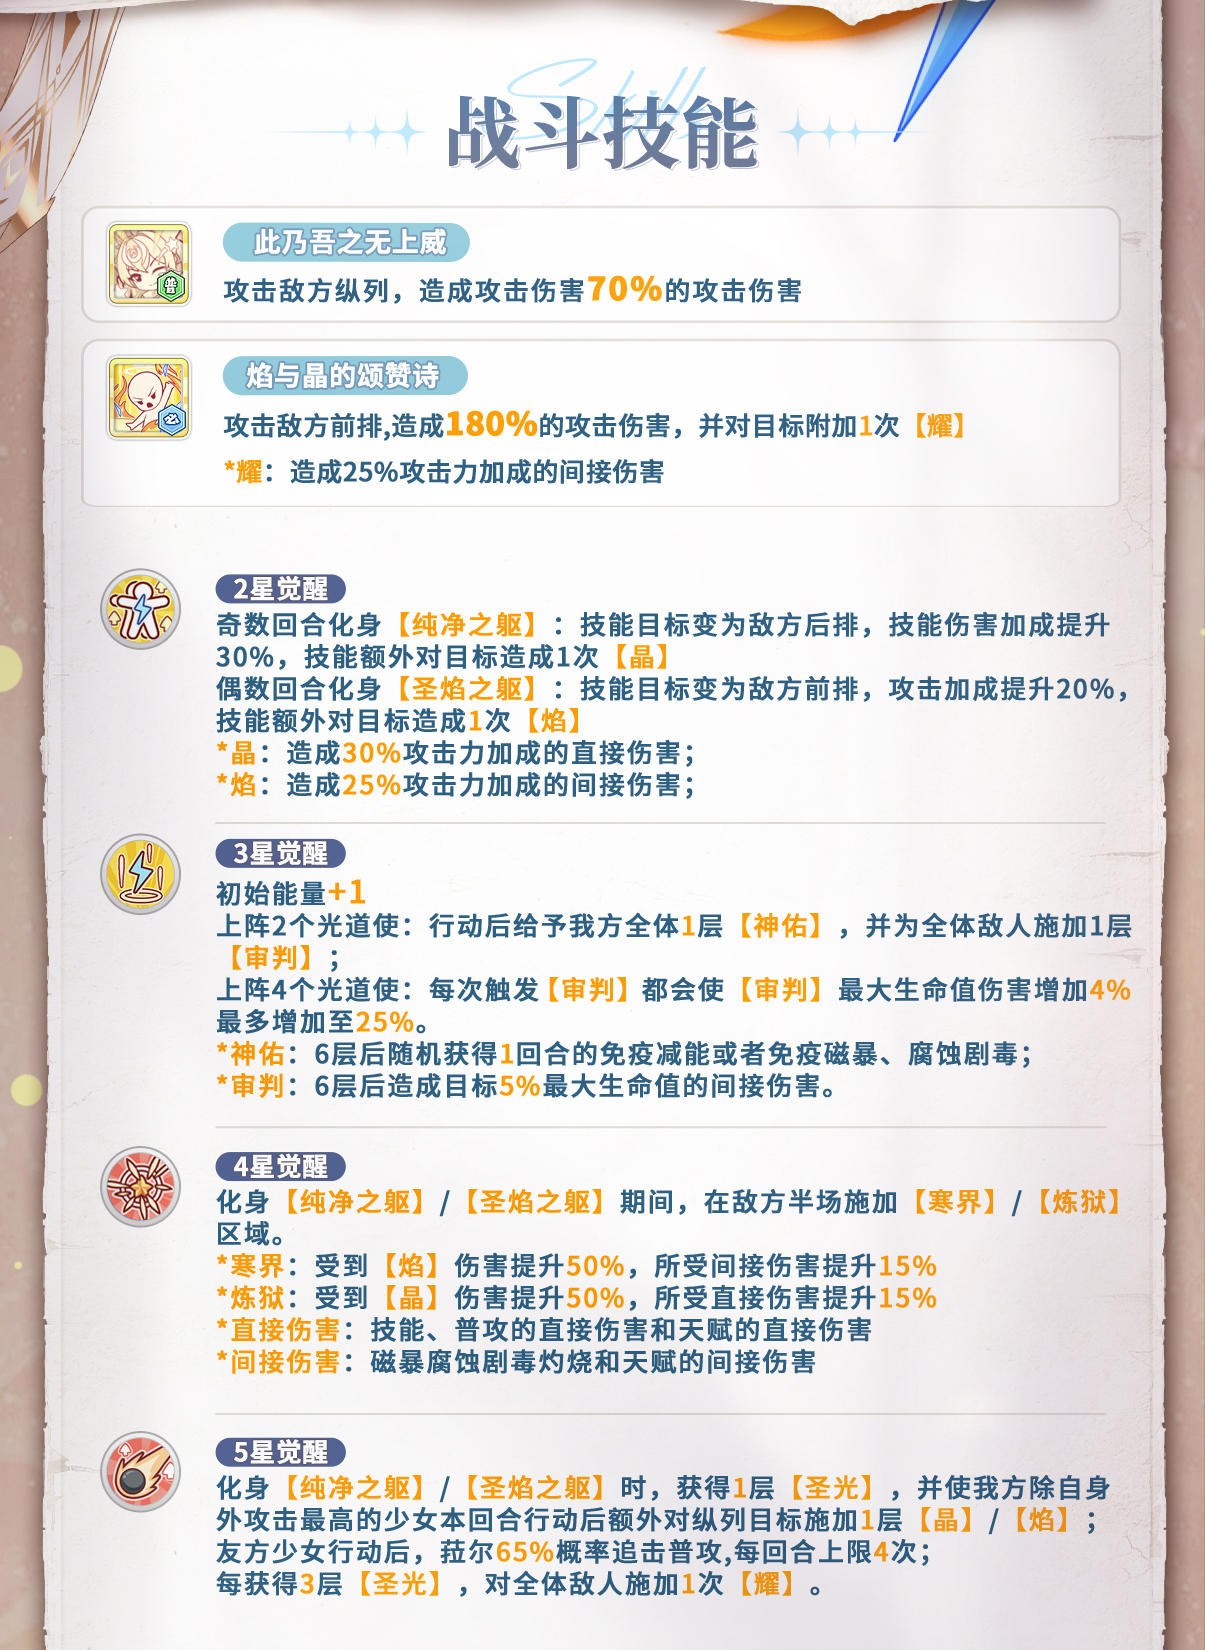 Skill
战斗技能
此乃吾之无上威
普
攻击敌方纵列，造成攻击伤害70%的攻击伤害
焰与晶的颂赞诗
攻击敌方前排,造成180%的攻击伤害，并对目标附加1次【耀】
*耀：造成25%攻击力加成的间接伤害
2星觉醒
奇数回合化身【纯净之躯】：技能目标变为敌方后排，技能伤害加成提升
30%，技能额外对目标造成1次【晶】
偶数回合化身【圣焰之躯】：技能目标变为敌方前排，攻击加成提升20%，
技能额外对目标造成1次【焰】
*晶：造成30%攻击力加成的直接伤害；
*焰：造成25%攻击力加成的间接伤害；
3星觉醒
初始能量+1
上阵2个光道使：行动后给予我方全体1层【神佑】，并为全体敌人施加1层
【审判】；
上阵4个光道使：每次触发【审判】都会使【审判】最大生命值伤害增加4%
最多增加至25%。
*神佑：6层后随机获得1回合的免疫减能或者免疫磁暴、腐蚀剧毒；
*审判：6层后造成目标5%最大生命值的间接伤害。
4星觉醒
化身【纯净之躯】/【圣焰之躯】期间，在敌方半场施加【寒界】/【炼狱】
区域。
*寒界：受到【焰】伤害提升50%，所受间接伤害提升15%
*炼狱：受到【晶】伤害提升50%，所受直接伤害提升15%
*直接伤害：技能、普攻的直接伤害和天赋的直接伤害
*间接伤害：磁暴腐蚀剧毒灼烧和天赋的间接伤害
5星觉醒
化身【纯净之躯】/【圣焰之躯】时，获得1层【圣光】，并使我方除自身
外攻击最高的少女本回合行动后额外对纵列目标施加1层【晶】/【焰】；
友方少女行动后，菈尔65%概率追击普攻,每回合上限4次；
每获得3层【圣光】，对全体敌人施加1次【耀】。